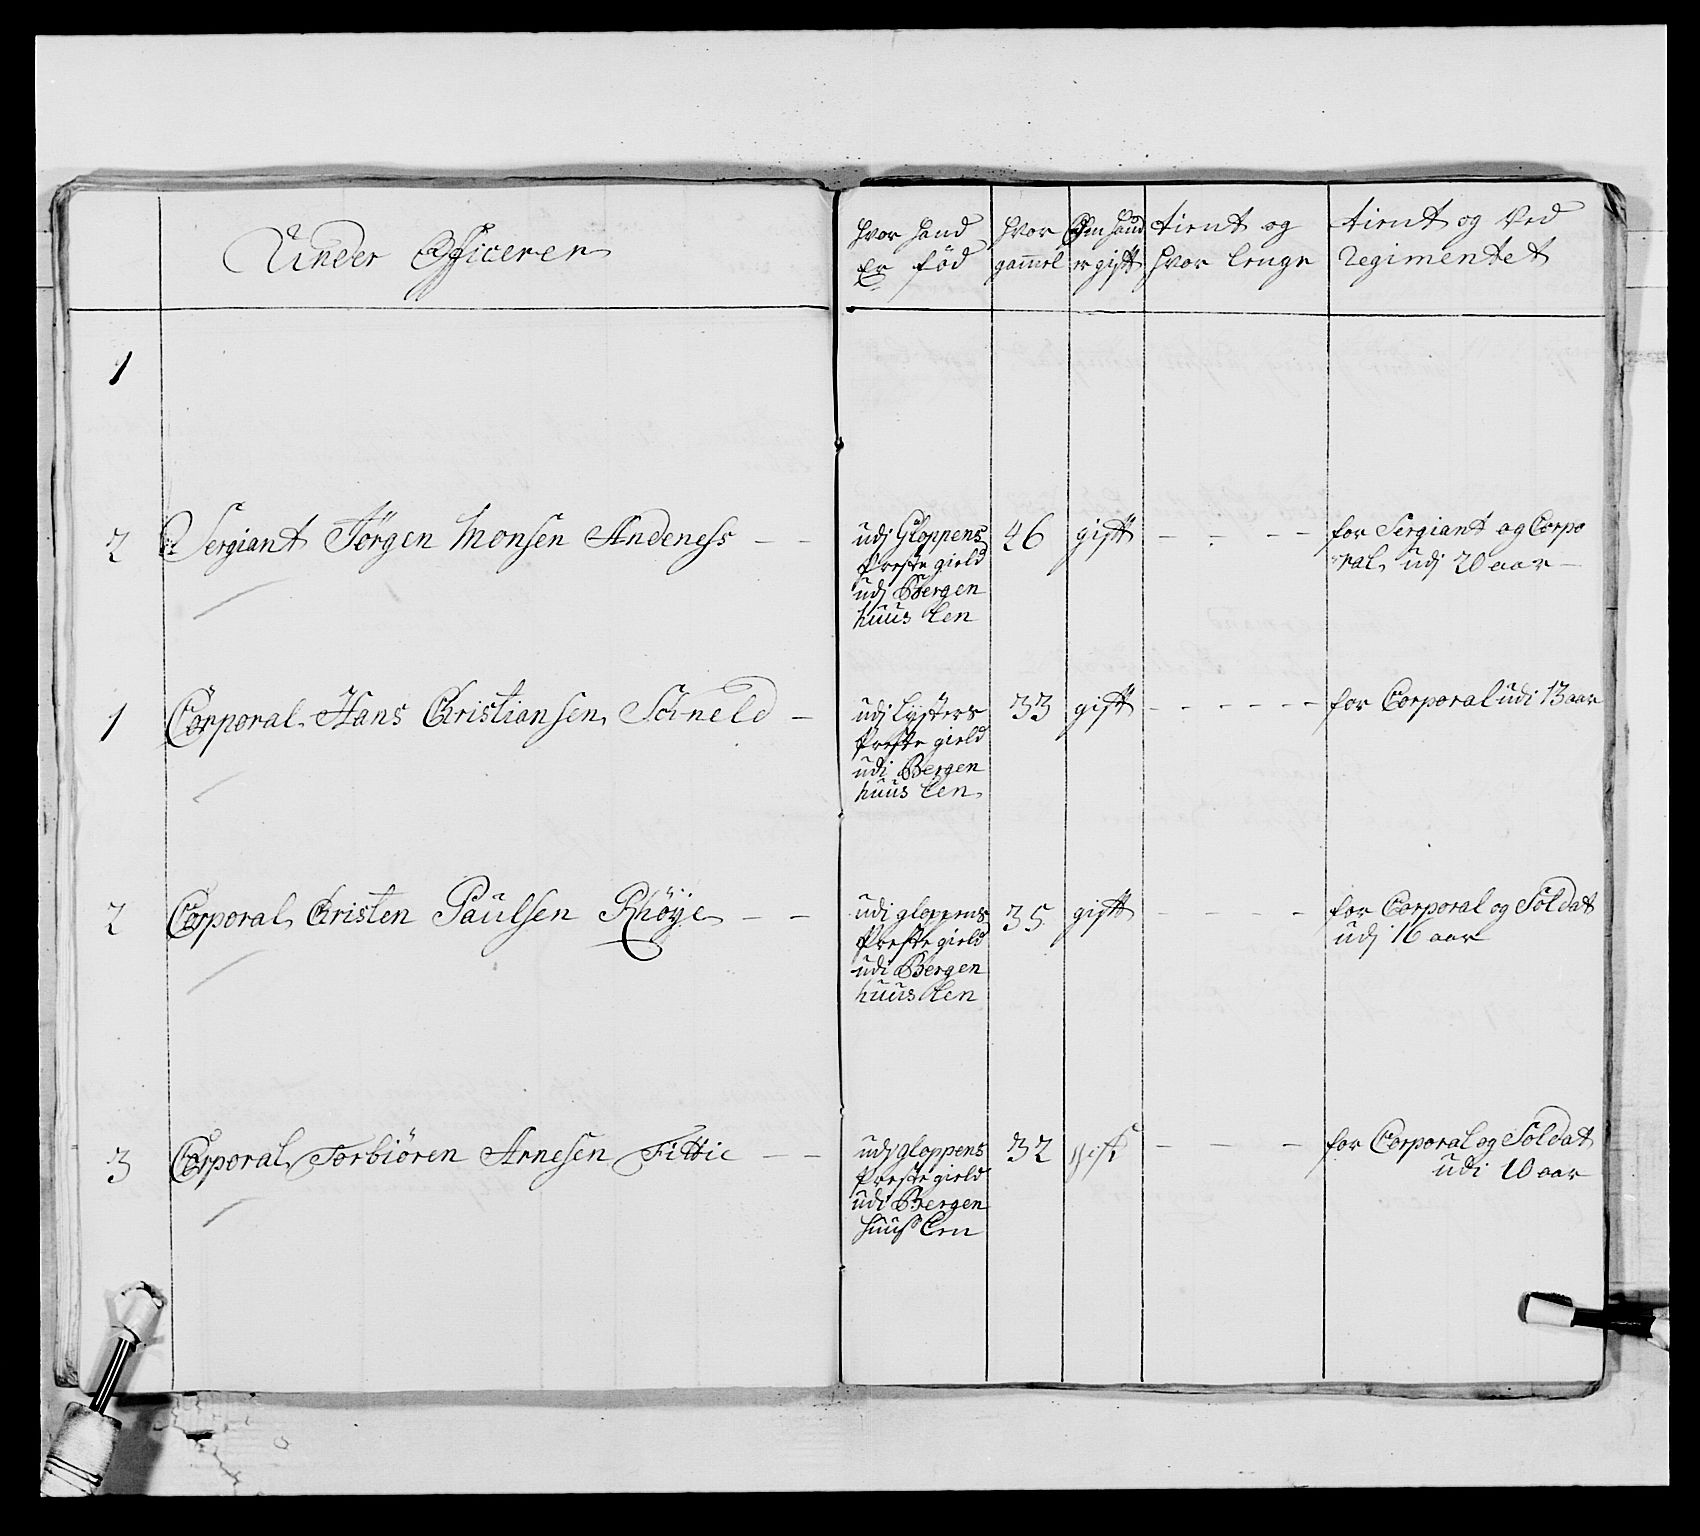 Under Officerer
hvor hand Er fød
hvor gammel
Om hand er gift
tient og hvor lenge
tient og ved Regimentet
1
2 Sergiant Jørgen Monsen Andeness - -
udj Gloppens
Preste gield
udj Bergen
huus Len
46 gift - - - -
for Sergiant og Corpo
ral udj 20 aar -
1 Corporal Hans Christiansen -
udj Lysters
Preste gield
udi Bergen
huus Len
33 gift - - - - - -
for Corporal udi 13 aar
2 Corporal Christen Paulsen Rhøye - -
udi gloppens
Preste gield
udi Bergen
huus Len
35 gift - - - -
for Corporal og Soldat
udj 16 aar
3 Corporal Torbiøren Arnesen Fittie - -
udj gloppens
Preste gield
udi Bergen
huus Len
32 gift - - -
for Corporal og Soldat
udi 10 aar